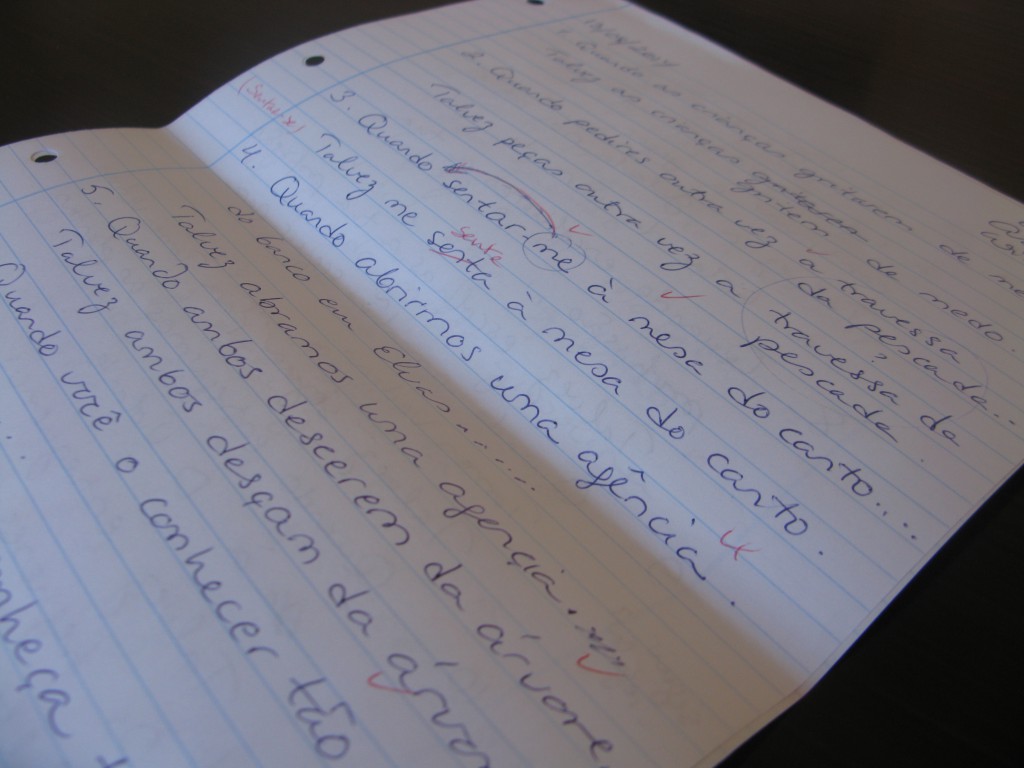 1. Quando as crianças gritarem de me
Talvez as crianças gritem de medo.
2. Quando pedires outra vez a travessa da pescada...
Talvez peças outra vez a travessa da pescada
3. Quando sentar me à mesa do canto...
(Sentar-se)
sente
Talvez me senta à mesa do canto.
4. Quando abrirmos uma agência.
do banco em Elvas......
Talvez abramos uma agencia...
5. Quando ambos descerem da árvore,
Talvez ambos desçam da árvo
Quando você o conhecer tão
nheça t